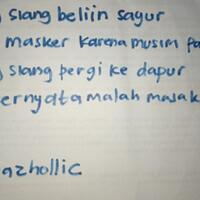 siang beliin sayur
masker karena musim pa
siang pergi ke dapur
ernyata malah masak
azhollic